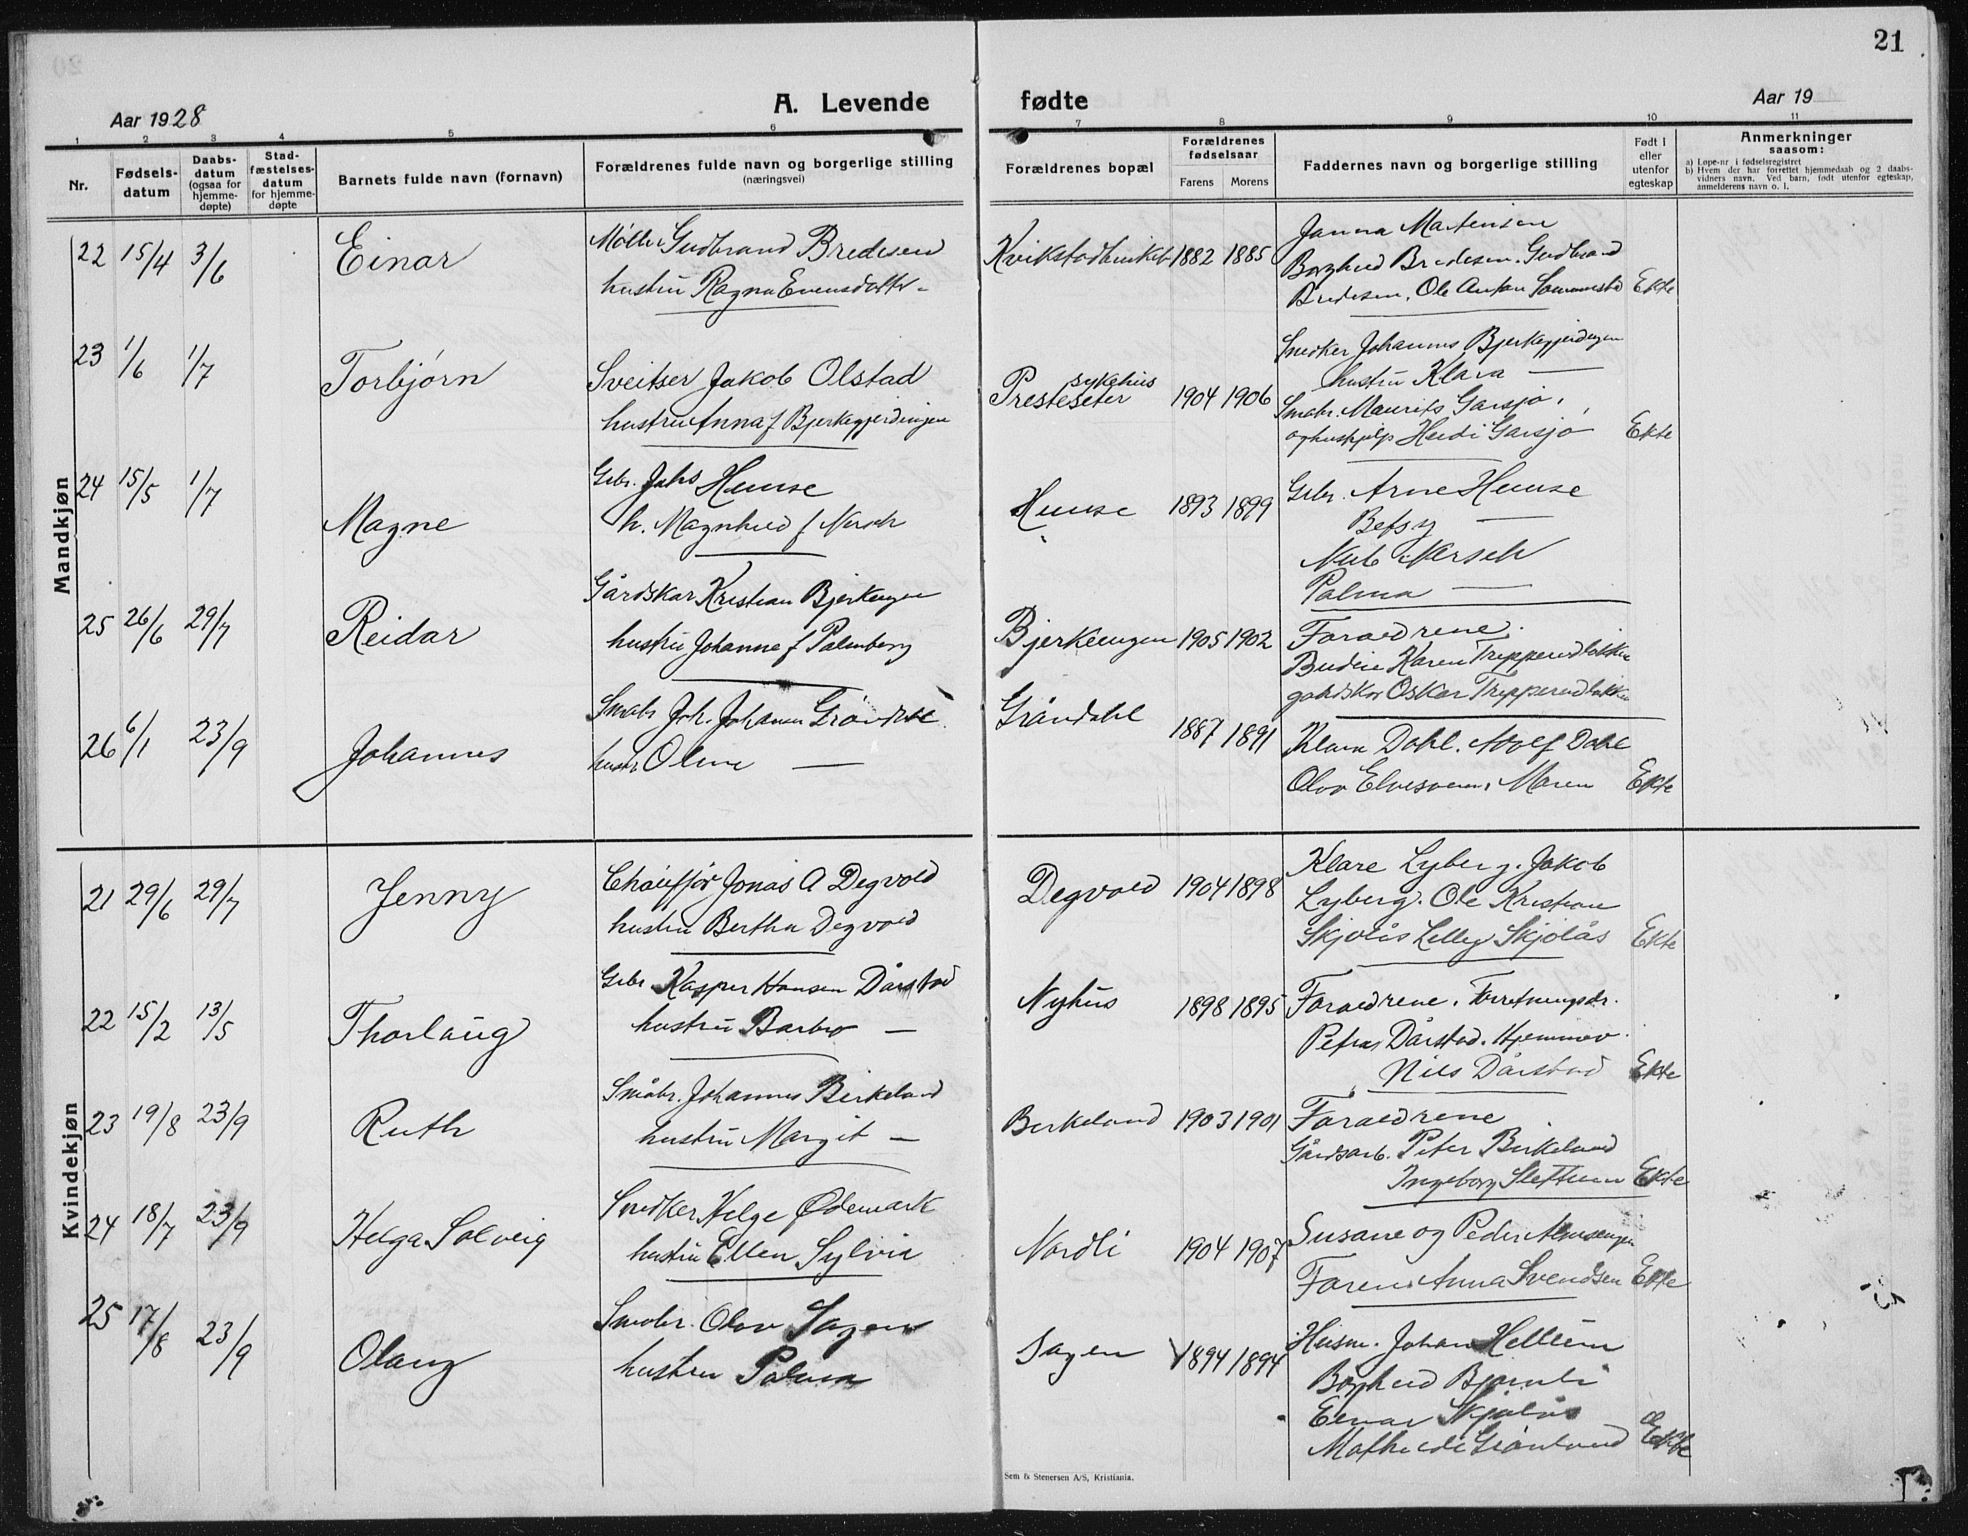 21
Aar 1928
A. Levende fødte
Aar 19
1 2 3 4 5 6 7 8 9 10 11
Nr.
Fødsels-
datum
Daabs-
datum
(ogsaa for
hjemme-
døpte)
Stad-
fæstelses-
datum
for hjemme-
døpte
Barnets fulde navn (fornavn)
Forældrenes fulde navn og borgerlige stilling
(næringsvei)
Forældrenes bopæl
Forældrenes
fødselsaar
Farens Morens
Faddernes navn og borgerlige stilling
Født i
eller
utenfor
egteskap
Anmerkninger
saasom:
a) Løpe-nr. i fødselsregistret
b) Hvem der har forrettet hjemmedaab og 2 daabs-
vidners navn. Ved barn, født utenfor egteskap,
anmelderens navn o. l.
Mandkjøn
22 15/4 3/6 Einar
Møller Gudbrand Bredesen
hustru Ragna Evensdatter
1882 1885
Janna Martinsen
Borghild Bredesen. Gudbrand
Bredesen. Ole Anton
Ekte
23 1/6 1/7 Torbjørn
Sveitser Jakob Olstad
hustru Anna f Bjerkegjerdingen
sykehus
Presteseter 1904 1906
Snedker Johannes Bjerkegjerdingen
hustru Klara —
Smabr. Maurits Garsjø,
og hushjelp Heidi Garsjø
Ekte
24 15/5 1/7 Magne
Gbr. Johs Hemse
h. Magnhild f
1893 1899
Gbr. Arne
Betsy —
Palma —
25 26/6 29/7 Reidar
Gårdskar Kristian Bjerkengen
hustru Johanne f Palmberg
Bjerkeengen 1905 1902
Foraedrene.
Budeie Karen Trepperudløkken
gårdskar Oskar Trepperudløkken
26 6/1 23/9 Johannes
Smabr Joh. Johansen Grøndahl
hustr. Oline —
Grøndahl 1887 1891
Klara Dahl. Adolf Dahl
Olav Maren
Ekte
Kvindekjøn
21 29/6 29/7 Jenny
Chauffør Jonas A Degvold
hustru Bertha Degvold
Degvold 1904 1898
Klare Lyberg. Jakob
Lyberg. Ole Kristian
Skjølås Lilly Skjølås
Ekte
22 15/2 13/5 Thorlaug
Gbr. Kasper Hansen Dårstad
hustru Barbro —
Nyhus 1898 1895
Foraedrene. Forretningsdr.
Petra Dårstad. Hjemmev.
Nils Dårstad
Ekte
23 19/8 23/9 Ruth
Småbr. Johannes Birkeland
hustru Margit —
Berkeland 1903 1901
Foraedrene
Gårdsarb. Peter Birkeland
Ingeborg Slettum
Ekte
24 18/7 23/9 Helga Solveig
Snedker Helge Ødemark
hustru Ellen Sylvia
Nordli 1904 1907
Susane og Peder
Faren. Anna Svendsen
Ekte
25 17/8 23/9 Olaug
Smabr. Olav Sagen
hustru Palma
Sagen 1894 1894
Husm. Johan Hellum
Borghild Bjørnli
Einar Skjølås
Mathilde Grønlund
Ekte
Sem & Stenersen A/S, Kristiania.